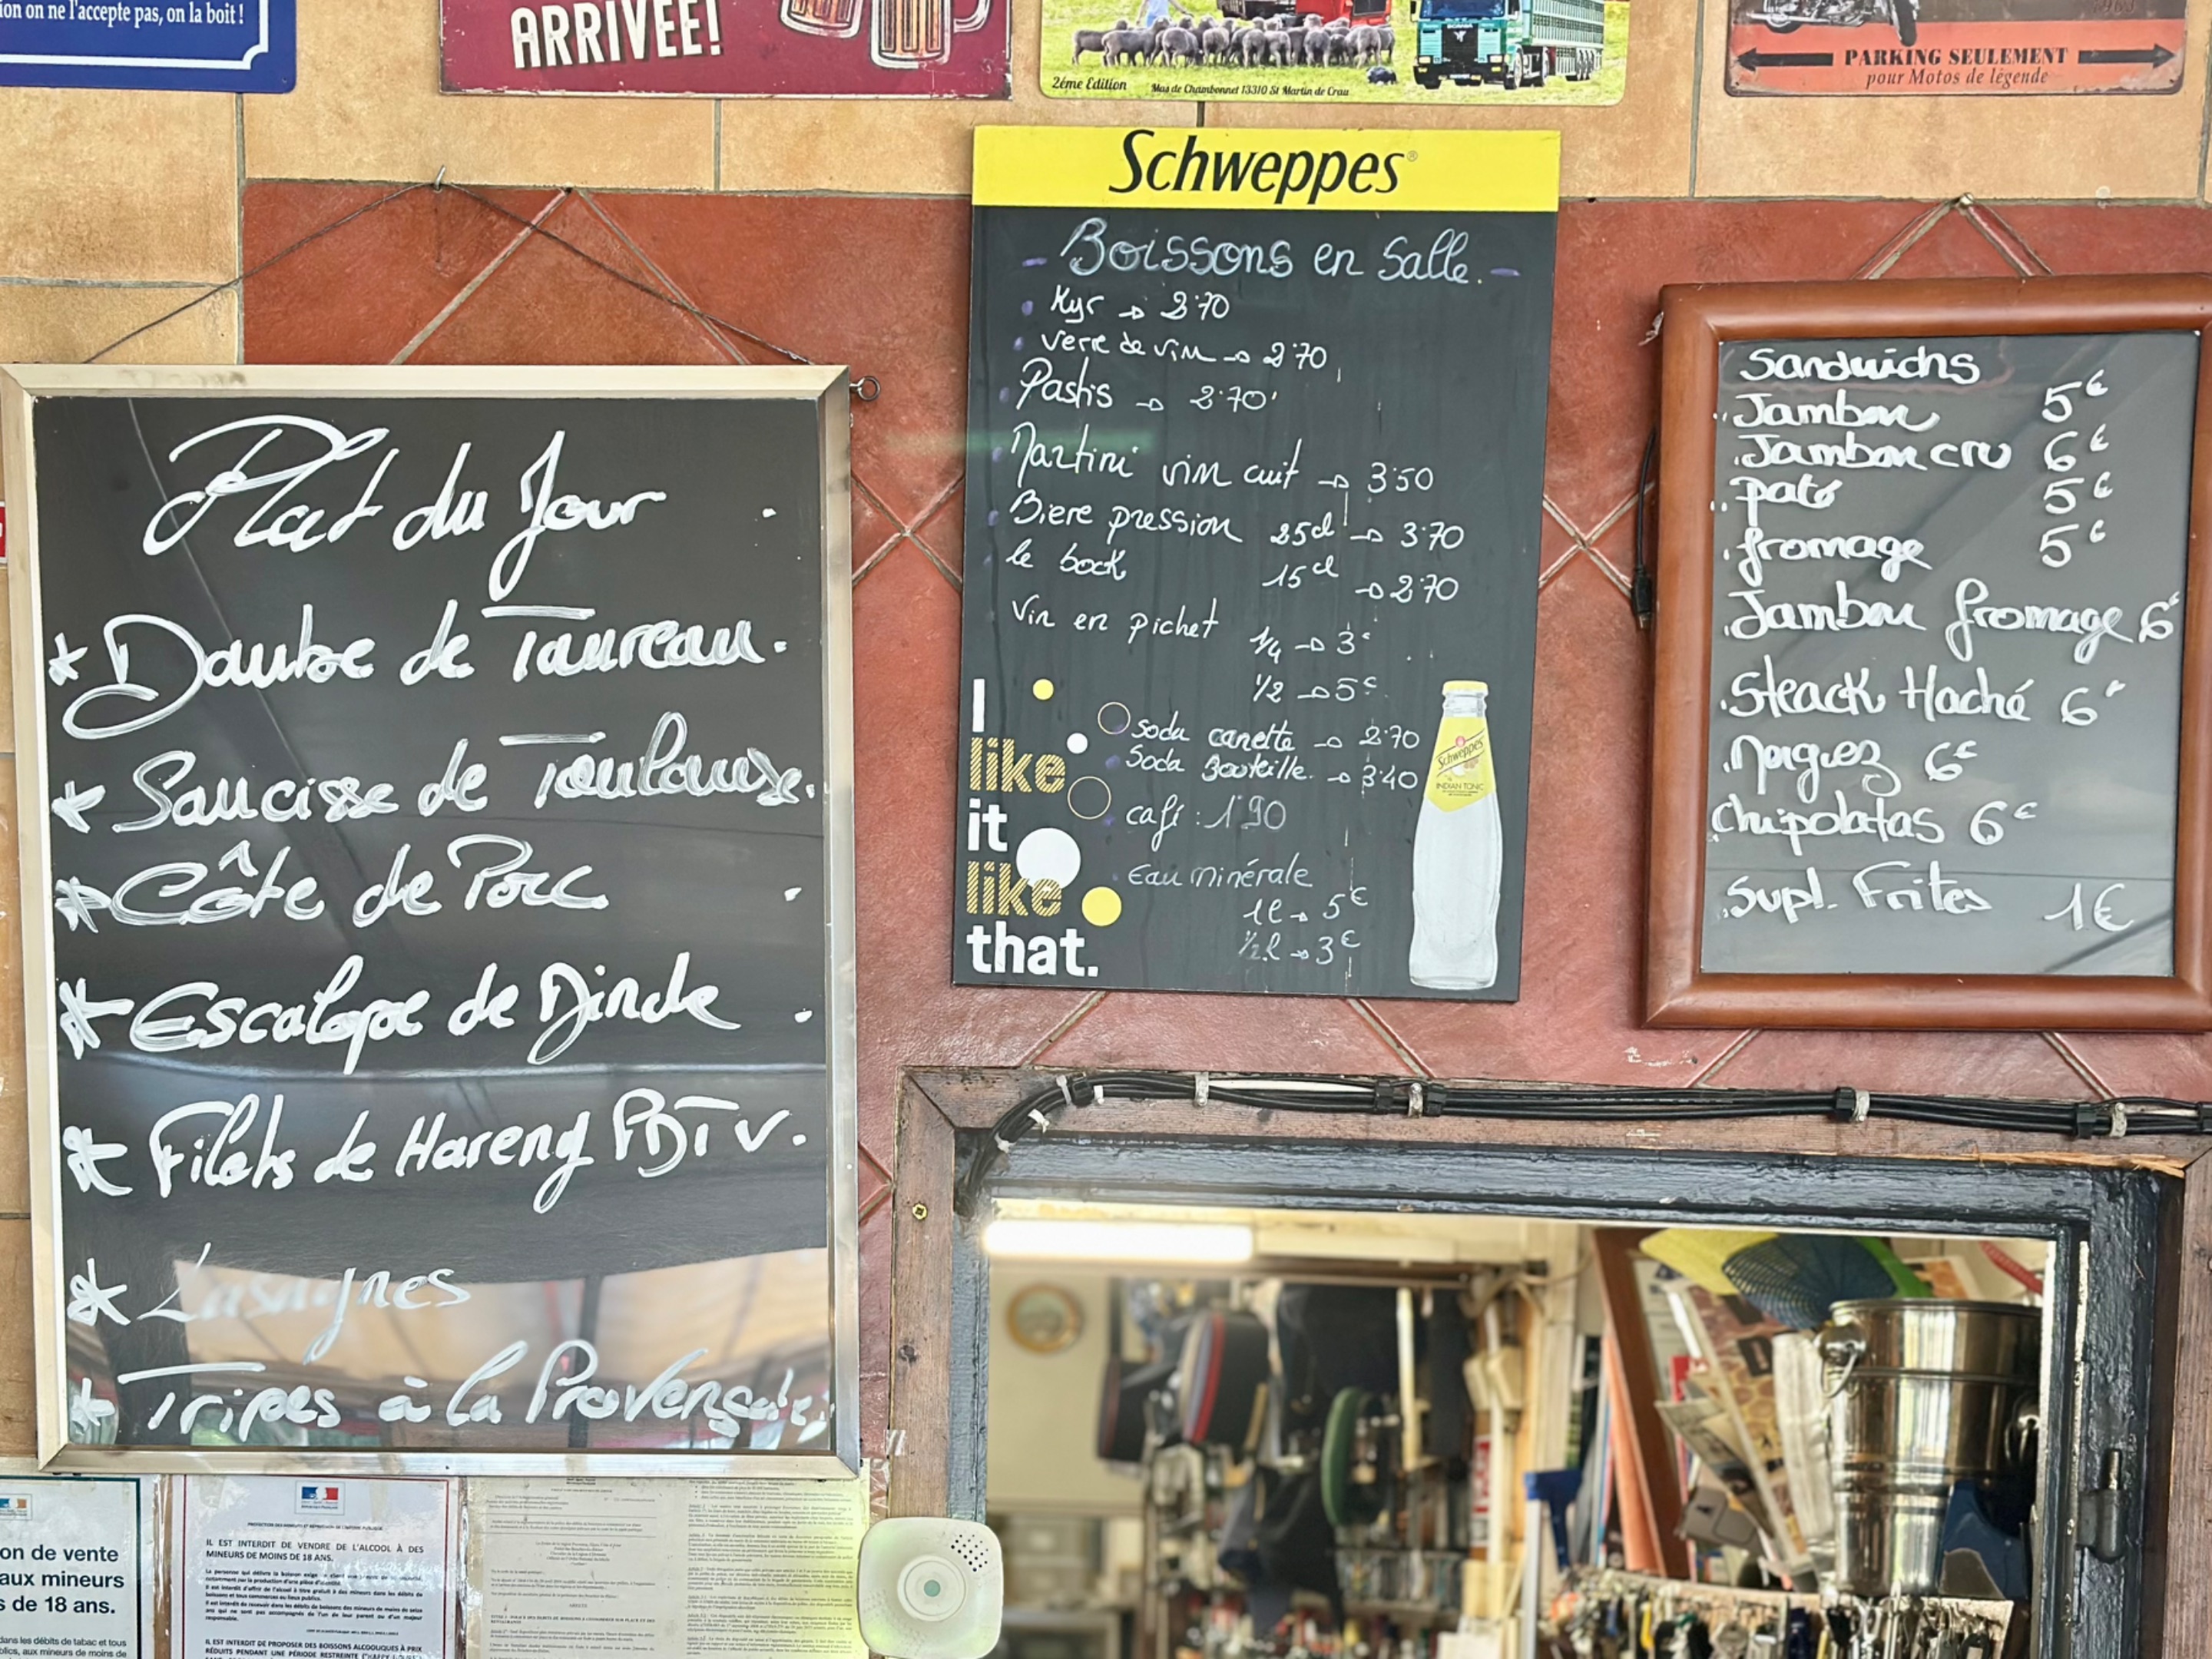 ion on ne l'accepte pas, on la boit !
ARRIVÉE!
SCANIA
2ème Edition
Mas de Chambonnet 13310 St Martin de Crau
PARKING SEULEMENT
pour Motos de légende
Plat du Jour
* Daube de Taureau.
* Saucisse de Toulouse.
* Côte de Porc
* Escalope de Dinde
* Filets de Hareng PDTV.
* Lasagnes
* Tripes à la Provençale.
Schweppes
- Boissons en Salle. -
Kyr → 2.70
verre de vin → 2.70
Pastis → 2.70
Martini vin cuit → 3.50
Biere pression 25cl → 3.70
le bock 15cl → 2.70
Vin en pichet 1/4 → 3€
1/2 → 5€
soda canette → 2.70
Soda Bouteille → 3.40
café : 1.90
Eau minérale
1l → 5€
1/2 l → 3€
I
like
it
like
that.
Schweppes
INDIAN TONIC
Sandwichs
Jambon 5€
Jambon cru 6€
paté 5€
fromage 5€
Jambon fromage 6€
Steack Haché 6€
Merguez 6€
Chipolatas 6€
Supl. Frites 1€
on de vente
aux mineurs
s de 18 ans.
dans les débits de tabac et tous
IL EST INTERDIT DE VENDRE DE L'ALCOOL À DES
MINEURS DE MOINS DE 18 ANS.
IL EST INTERDIT DE PROPOSER DES BOISSONS ALCOOLIQUES À PRIX
RÉDUITS PENDANT UNE PÉRIODE RESTREINTE